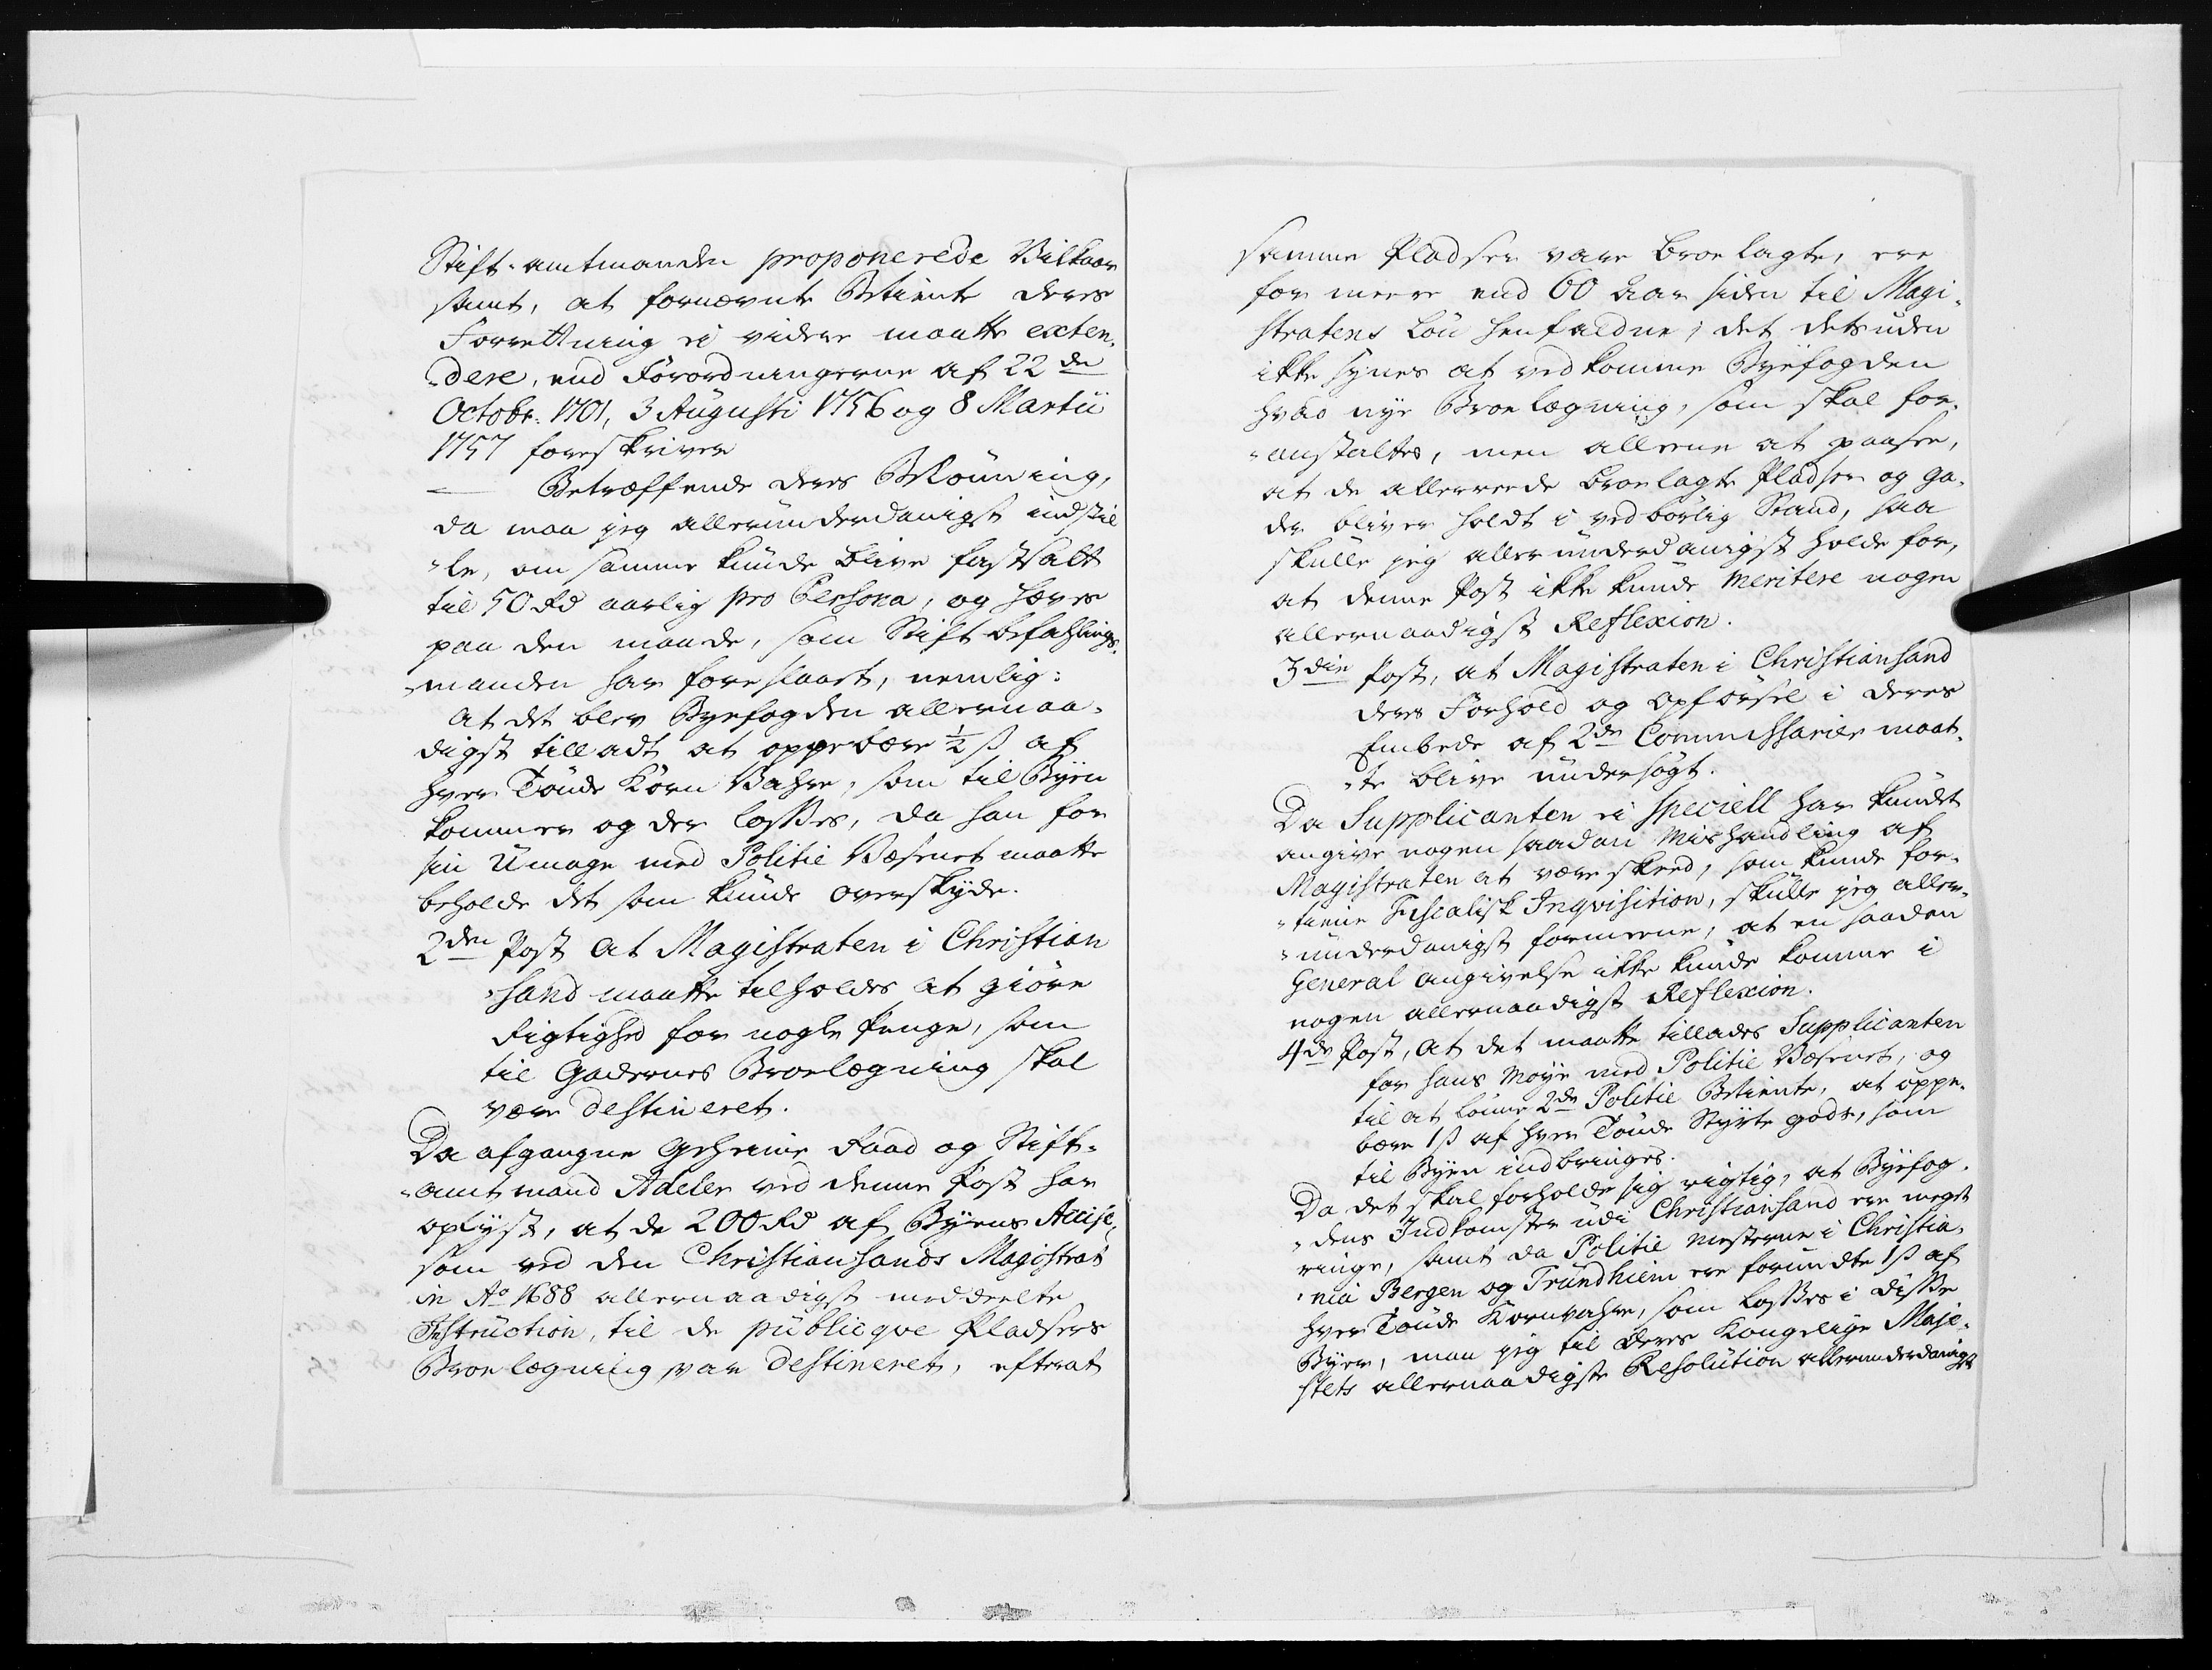 Stift-amtmanden proponerede Vilkaar
samt, at fornævnte Betiente deres
Forretning ei videre maatte exten-
-dere, end Forordningerne af 22de
Octobr: 1701, 3 Augusti 1756 og 8 Martii
1757 foreskriver
Betræffende deres Belønning,
da maa jeg allerunderdanigst indstil
-le, om samme kunde blive fastsatt
til 50 Rd aarlig pro Persona, og hæves
paa den maade, som Stift befahlings-
-manden har foreslaaet, nemlig:
At det blev Byefogden allernaa-
digst tilladt at oppebære ½ ß af
hver Tønde Korn Vahre, som til Byen
kommer og der losses, da han for
sin Umage med Politie Væsenet maatte
beholde det som kunde overskyde.
2den Post At Magistraten i Christian
-sand maatte tilholdes at giøre
Rigtighed for nogle Penge, som
til Gadernes Broelægning skal
være destineret.
Da afgangne Geheime Raad og Stift-
-amtmand Adeler ved denne Post har
oplyst, at de 200 Rd af Byens Accise,
som ved den Christiansands Magistrat
in Ao 1688 allernaadigst meddeelte
Instruction, til de publicqve Pladsers
Broelægning var destineret, efterat
samme Pladser vare broelagte, ere
for meere end 60 Aar siden til Magi-
stratens Løn henfaldne, det desuden
ikke synes at vedkomme Byefogden
hvad nye Broelægning, som skal for-
-anstaltes, men alleene at paasee,
at de allerreede broelagte Pladser og Ga-
der bliver holdt i ved børlig Stand, saa
skulle jeg allerunderdanigst holde for,
at denne Post ikke kunde meritere nogen
allernaadigst Reflexion.
3die Post, at Magistraten i Christiansand
deres Forhold og opførsel i deres
Embede af 2de Commissarier maat-
-te blive undersøgt.
Da Supplicanten ei speciell har kundet
angive nogen saadan Mishandling af
Magistraten at være skeed, som kunde for-
-tiene Fiscalisk Inqvisition, skulle jeg aller-
-underdanigst formeene, at en saadan
General angivelse ikke kunde komme i
nogen allernaadigst Reflexion.
4de Post, At det maatte tillades Supplicanten
for hans Møye med Politie Væsenet, og
til at lønne 2de Politie Betiente, at oppe-
bære 1 ß af hver Tønde Styrte gods, som
til Byen indbringes.
Da det skal forholde sig rigtig, at Byefog-
-dens Indkomster udi Christiansand ere meget
ringe, samt da Politie Mesterne i Christia-
-nia Bergen og Trundhiem ere forundte 1 ß af
hver Tønde Kornvahre, som losses i disse
Byer, maa jeg til Deres Kongelige Maje-
stets allernaadigste Resolution allerunderdanigst